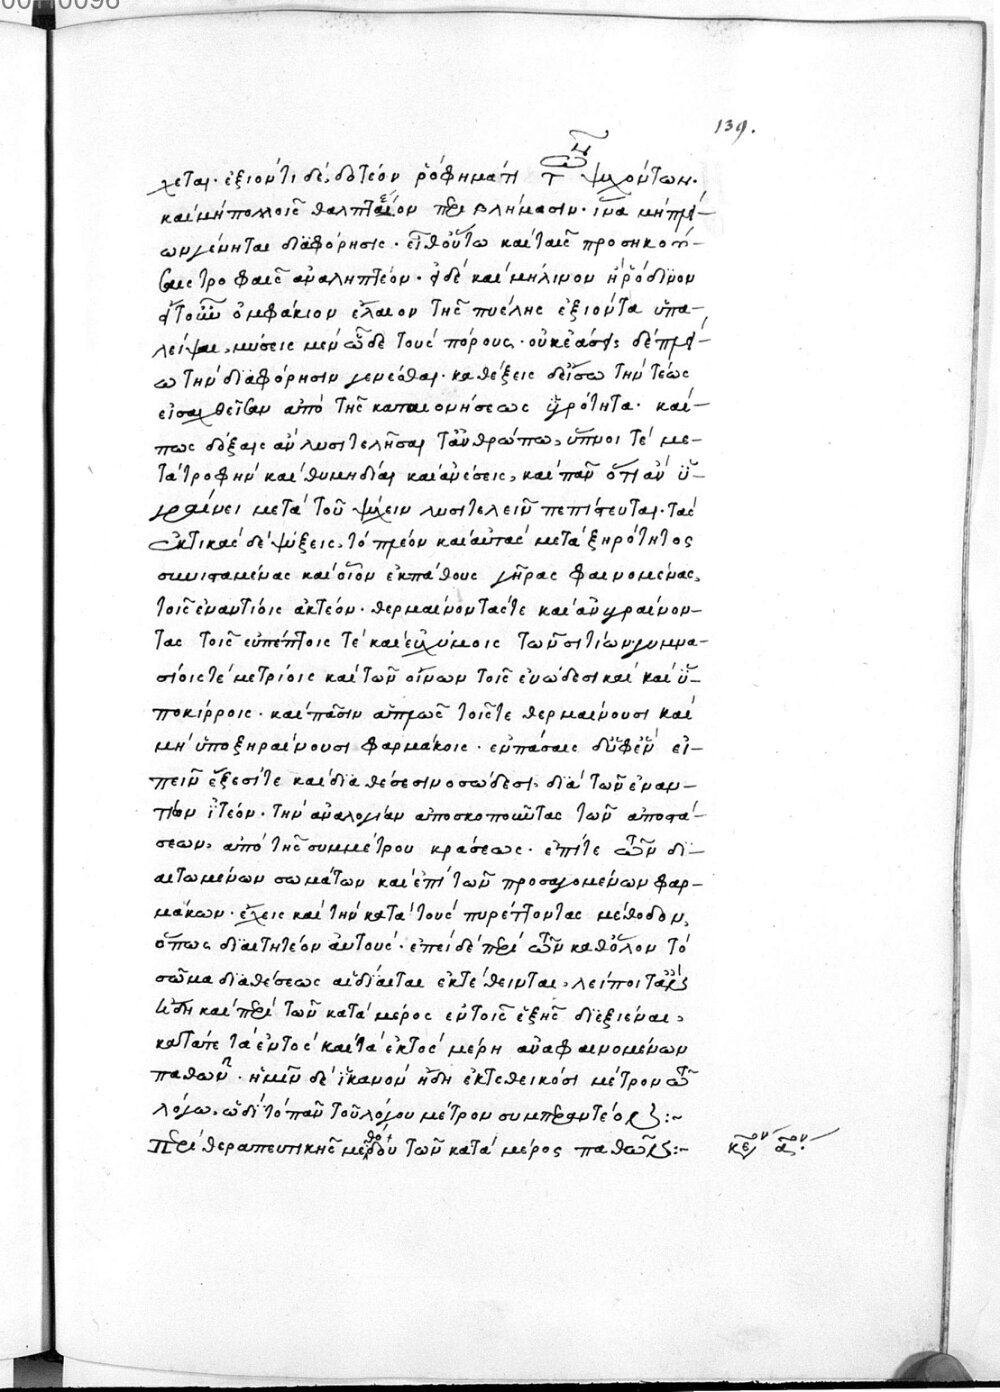 139.
χεται. ἐξιόντι δέ, δοτέον ῥόφημά τι τῶν ψυχόντων.
καὶ μὴ πολλοῖς θαλπτέον περιβλήμασιν. ἵνα μὴ πλεί-
ων γένηται διαφόρησις. εἶθ' οὕτω καὶ ταῖς προσηκού-
σαις τροφαῖς ἀναληπτέον. εἰ δὲ καὶ μήλινον ἢ ῥόδινον
ἢ τοιοῦτον ὀμφάκιον ἔλαιον τῆς πυέλης ἐξιόντα ὑπα-
λείψαι, μύσεις μὲν ὧδε τοὺς πόρους. οὐκ ἐάσεις δὲ πλεί-
ω τὴν διαφόρησιν γενέσθαι. καθέξεις δ' εἴσω τὴν τέως
εἰσαχθεῖσαν ἀπὸ τῆς καταιονήσεως ὑγρότητα. καί-
πως δόξαις ἂν λυσιτελῆσαι τἀνθρώπω, ὕπνοι τὲ με-
τὰ τροφὴν καὶ θυμηδίαι καὶ ἀνέσεις, καὶ πᾶν ὅτι ἂν ὑ-
γραίνει μετὰ τοῦ ψύχειν λυσιτελεῖν πεπίστευται. τὰς
ἑκτικὰς δὲ ψύξεις, τὸ πλέον καὶ αὐτὰς μετὰ ξηρότητος
συνισταμένας καὶ οἷον ἐκ πάθους γῆρας φαινομένας,
τοῖς ἐναντίοις ἀκτέον. θερμαίνοντάς τε καὶ ἀνυγραίνον-
τας τοῖς εὐπέπτοις τὲ καὶ εὐχύμοις τῶν σιτίων γυμνα-
σίοις τὲ μετρίοις καὶ τῶν οἴνων τοῖς εὐώδεσι καὶ καὶ ὑ-
ποκίρροις. καὶ πᾶσιν ἁπλῶς τοῖς τε θερμαίνουσι καὶ
μὴ ὑποξηραίνουσι φαρμάκοις. ἐν πάσαις δ' ὑφ' ἓν εἰ-
πεῖν ἕξεσί τε καὶ διαθέσεσι νοσώδεσι, διὰ τῶν ἐναν-
τίων ἰτέον. τὴν ἀναλογίαν ἀποσκοποῦντας τῶν ἀποστά-
σεων, ἀπὸ τῆς συμμέτρου κράσεως. ἐπί τε τῶν δι-
αιτωμένων σωμάτων καὶ ἐπὶ τῶν προσαγομένων φαρ-
μάκων. ἔχεις καὶ τὴν κατὰ τοὺς πυρέττοντας μέθοδον,
ὅπως διαιτητέον αὐτούς. ἐπεὶ δὲ περὶ τῶν καθ' ὅλον τὸ
σῶμα διαθέσεως αἱ δίαιται ἐκτέθεινται, λείποιτ' ἂν
ἤδη καὶ περὶ τῶν κατὰ μέρος ἐν τοῖς ἑξῆς διεξιέναι,
κατά τε τὰ ἐντὸς καὶ τὰ ἐκτὸς μέρη ἀναφαινομένων
παθῶν. ἡμῖν δὲ ἱκανὸν ἤδη ἐκτεθεικόσι μέτρον τῶ
λόγω, ὡδὶ τὸ πᾶν τοῦ λόγου μέτρον συμπεραντέον:~
Περὶ θεραπευτικῆς μεθόδου τῶν κατὰ μέρος παθῶν:~ κεφ^ον α^ον.